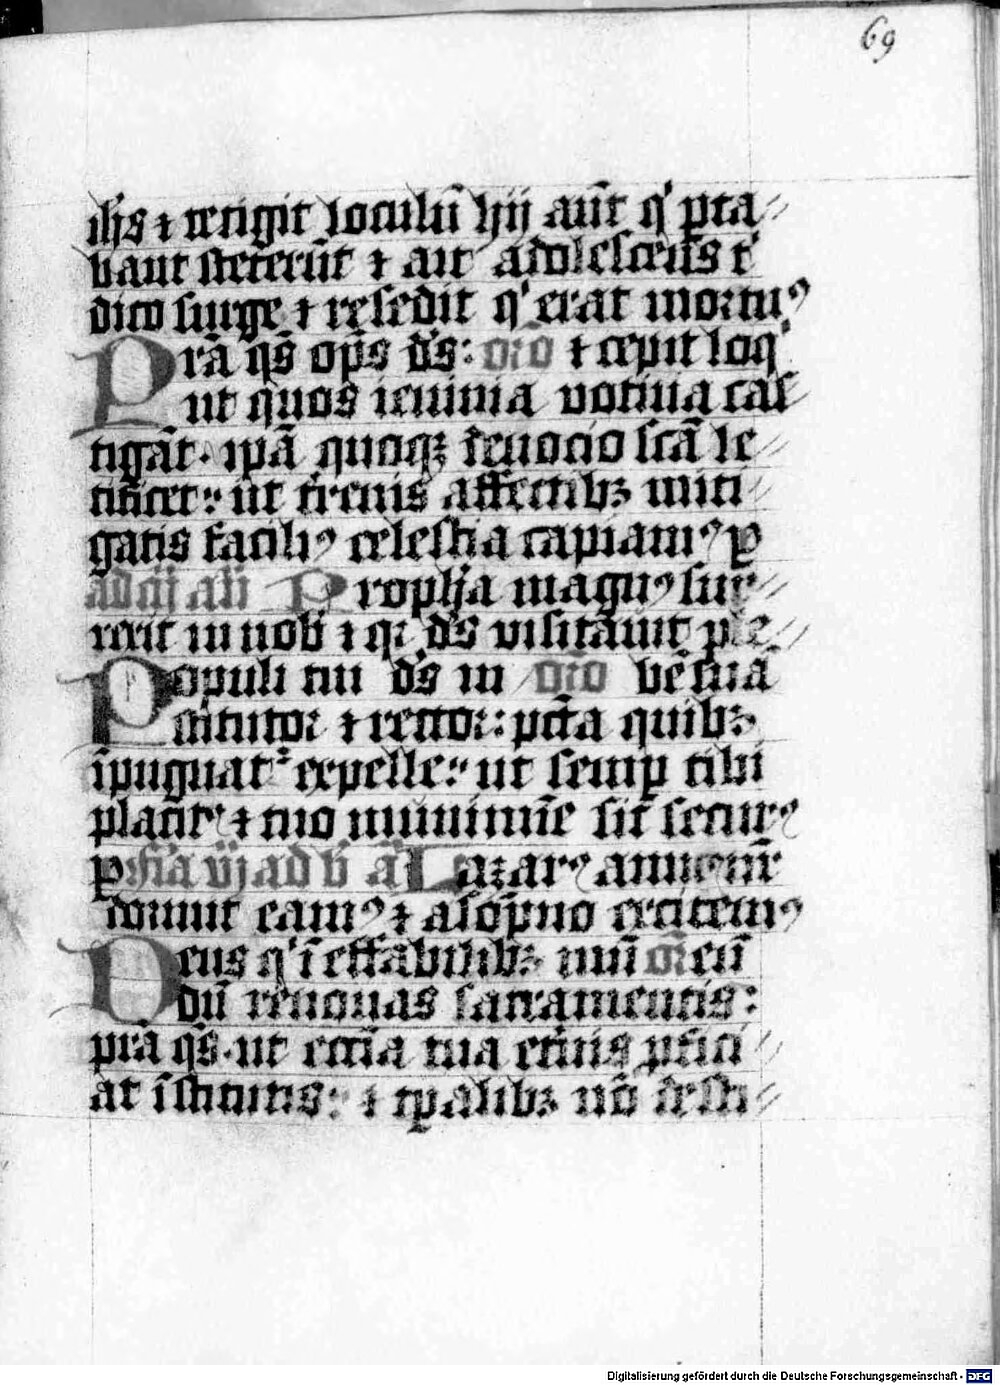 69
ih̄s ⁊ tetigit loculū hij aūt qͥ p̲ta⸗
bant steterūt ⁊ ait adolescens tͥ
dico surge ⁊ resedit qͥ erat mortuꝰ
Prā qs̄ op̄s ds̄: oro ⁊ cepit loqͥ
ut quos ieiunia votiua cas
tigāt. ip̄a quoqꝫ deuocio scā le⸗
tificet: ut tr̄enis affectibꝫ miti⸗
gatis faciliꝰ celestia capiamꝰ ꝑ
ad Prophā magnꝰ sur⸗
rexit in nob̄ ⁊ qꝛ ds̄ visitauit ple⸗
Populi tui ds̄ in oro be suā
stitutor ⁊ rector: pcc̄a quibꝫ
īpugnatͬ expelle: ut semꝑ tibi
placitꝰ ⁊ tuo munimīe sit securꝰ
ꝑ fr̄ia vj ad b̄ añ Lazarꝰ amicꝰ nr̄
dormit eamꝰ ⁊ a sōpno excitemꝰ
Deus qͥ īeffabilibꝫ mū or̄ eū
dū renouas sacramentis:
prā qs̄. ut eccīa tua et̄nis ꝓfici⸗
at īstitutis: ⁊ tp̄alibꝫ nō desti⸗
Digitalisierung gefördert durch die Deutsche Forschungsgemeinschaft - DFG